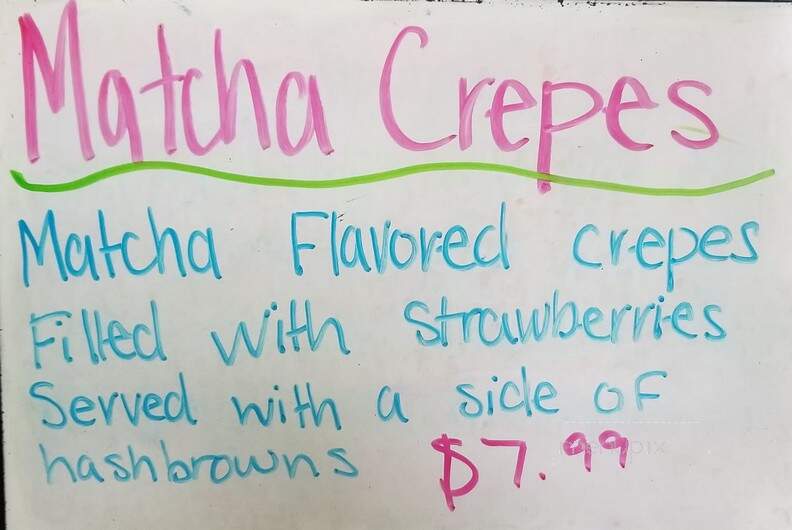 Matcha Crepes
Matcha Flavored crepes
Filled with strawberries
Served with a side of
hashbrowns $7.99